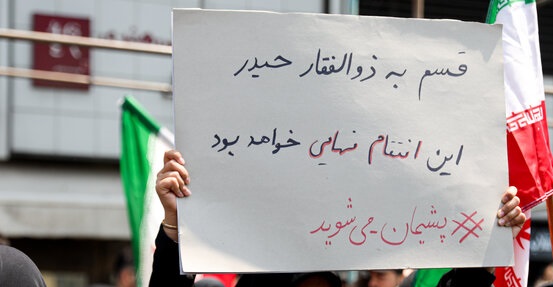 قسم به ذوالفقار حیدر
این انتقام نهایی خواهد بود
#پشیمان_می‌شوید